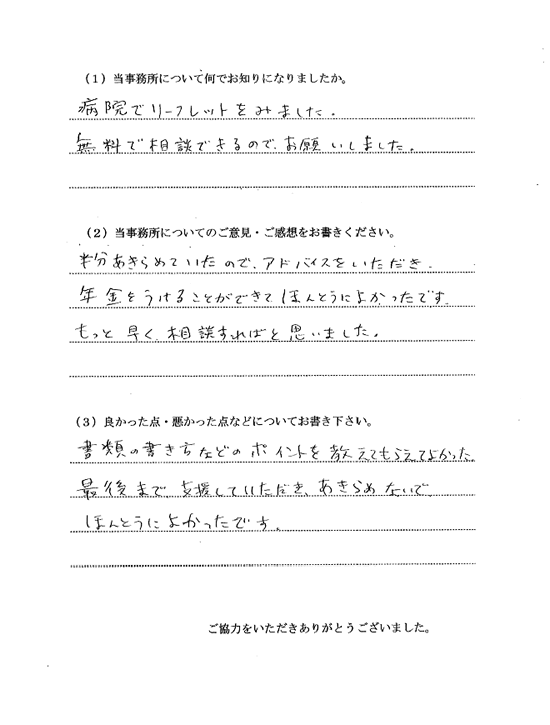 (1) 当事務所について何でお知りになりましたか。
病院でリーフレットをみました.
無料で相談できるので、お願いしました。
(2) 当事務所についてのご意見・ご感想をお書きください。
半分あきらめていたので、アドバイスをいただき.
年金をうけることができてほんとうによかったです.
もっと早く相談すればと思いました。
(3) 良かった点・悪かった点などについてお書き下さい。
書類の書き方などのポイントを教えてもらえてよかった.
最後まで支援していただき、あきらめないで
ほんとうによかったです。
ご協力をいただきありがとうございました。